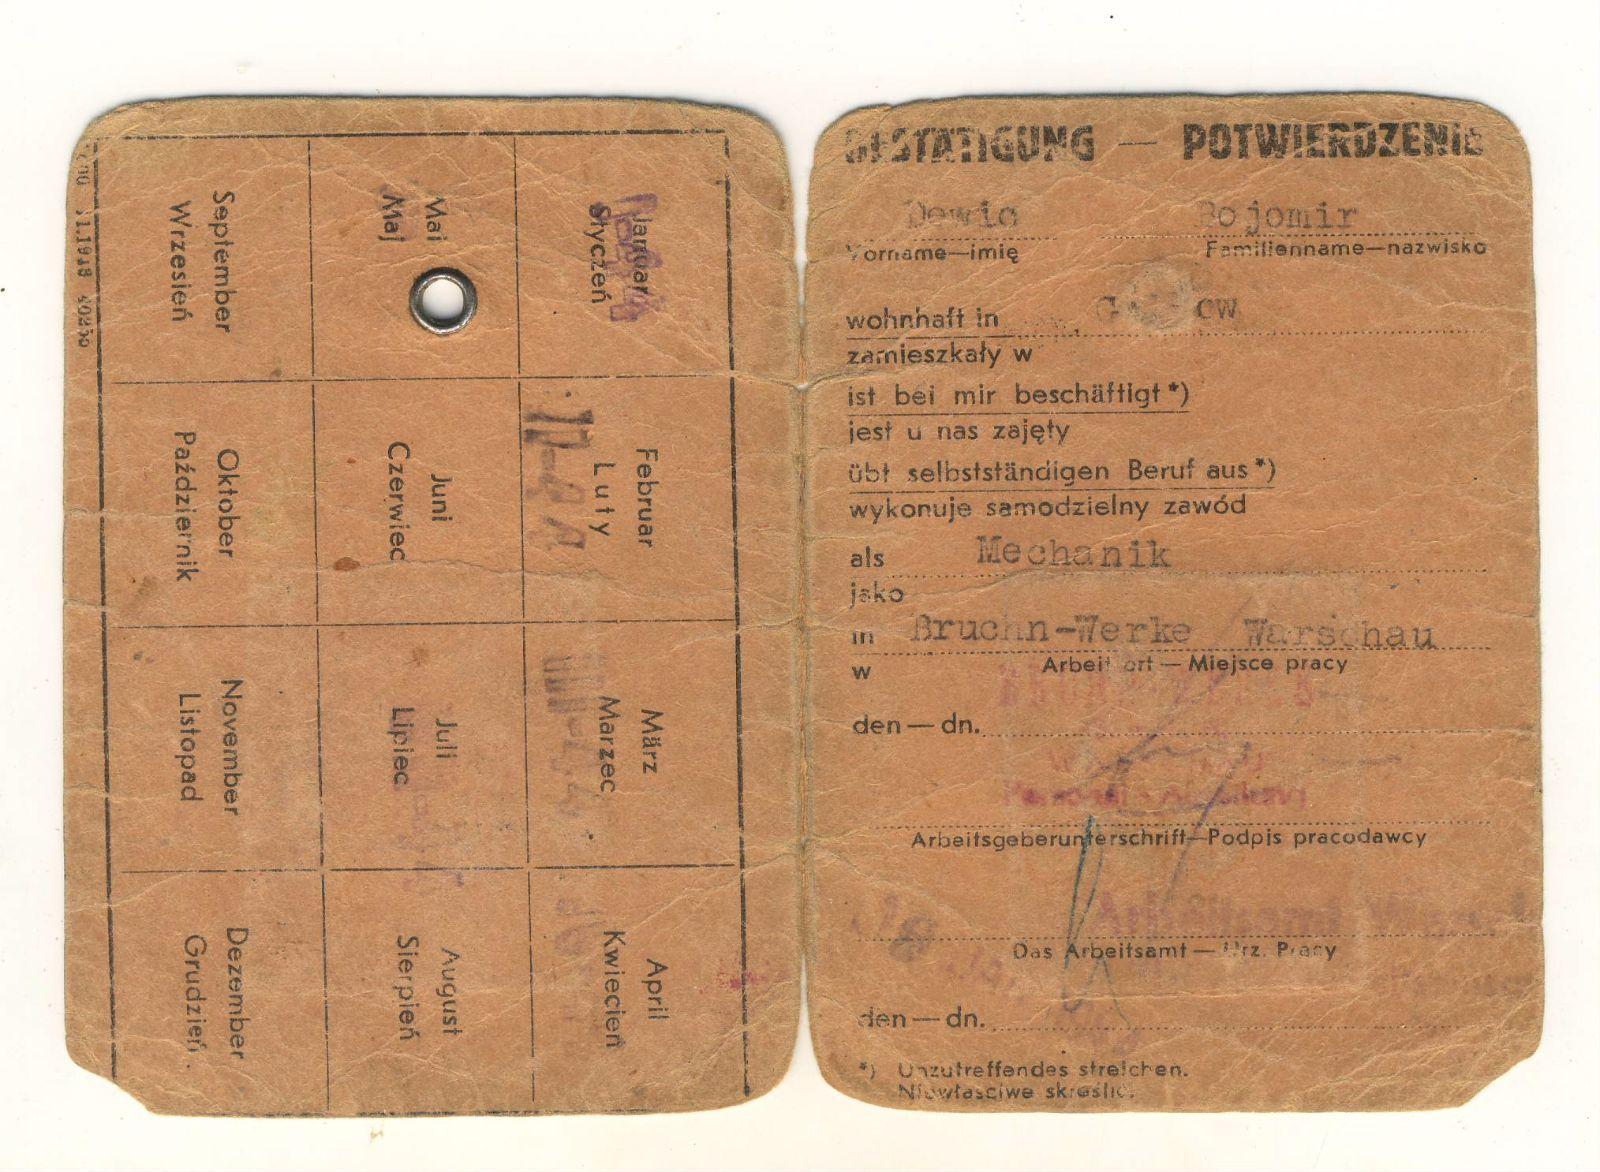 Januar
Styczeń
Februar
Luty
März
Marzec
April
Kwiecień
Mai
Maj
Juni
Czerwiec
Juli
Lipiec
August
Sierpień
September
Wrzesień
Oktober
Październik
November
Listopad
Dezember
Grudzień
BESTÄTIGUNG — POTWIERDZENIE
Dewic Bojomir
Vorname—imię Familienname—nazwisko
wohnhaft in
zamieszkały w
ist bei mir beschäftigt*)
jest u nas zajęty
übt selbstständigen Beruf aus*)
wykonuje samodzielny zawód
als Mechanik
jako
in Bruchn-Werke Warschau
w Arbeitsort — Miejsce pracy
den — dn.
Arbeitsgeberunterschrift—Podpis pracodawcy
Das Arbeitsamt — Urz. Pracy
den — dn.
*) Unzutreffendes streichen.
Niewłaściwe skreślić.